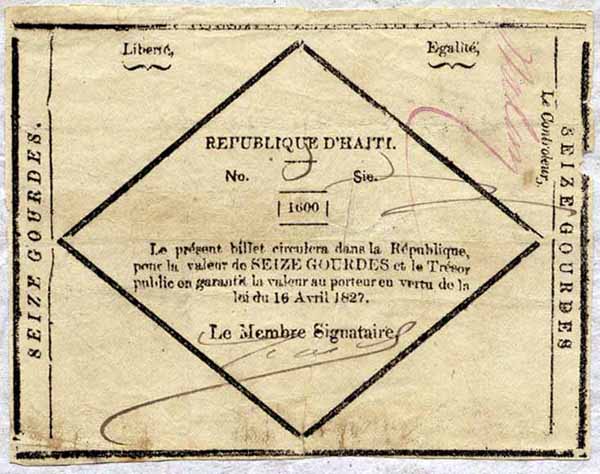 Liberté,
Egalité,
SEIZE GOURDES.
REPUBLIQUE D'HAITI.
No. Sie.
1600
Le présent billet circulera dans la République,
pour la valeur de SEIZE GOURDES et le Trésor
public en garantit la valeur au porteur en vertu de la
loi du 16 Avril 1827.
Le Membre Signataire,
Le Controleur,
SEIZE GOURDES